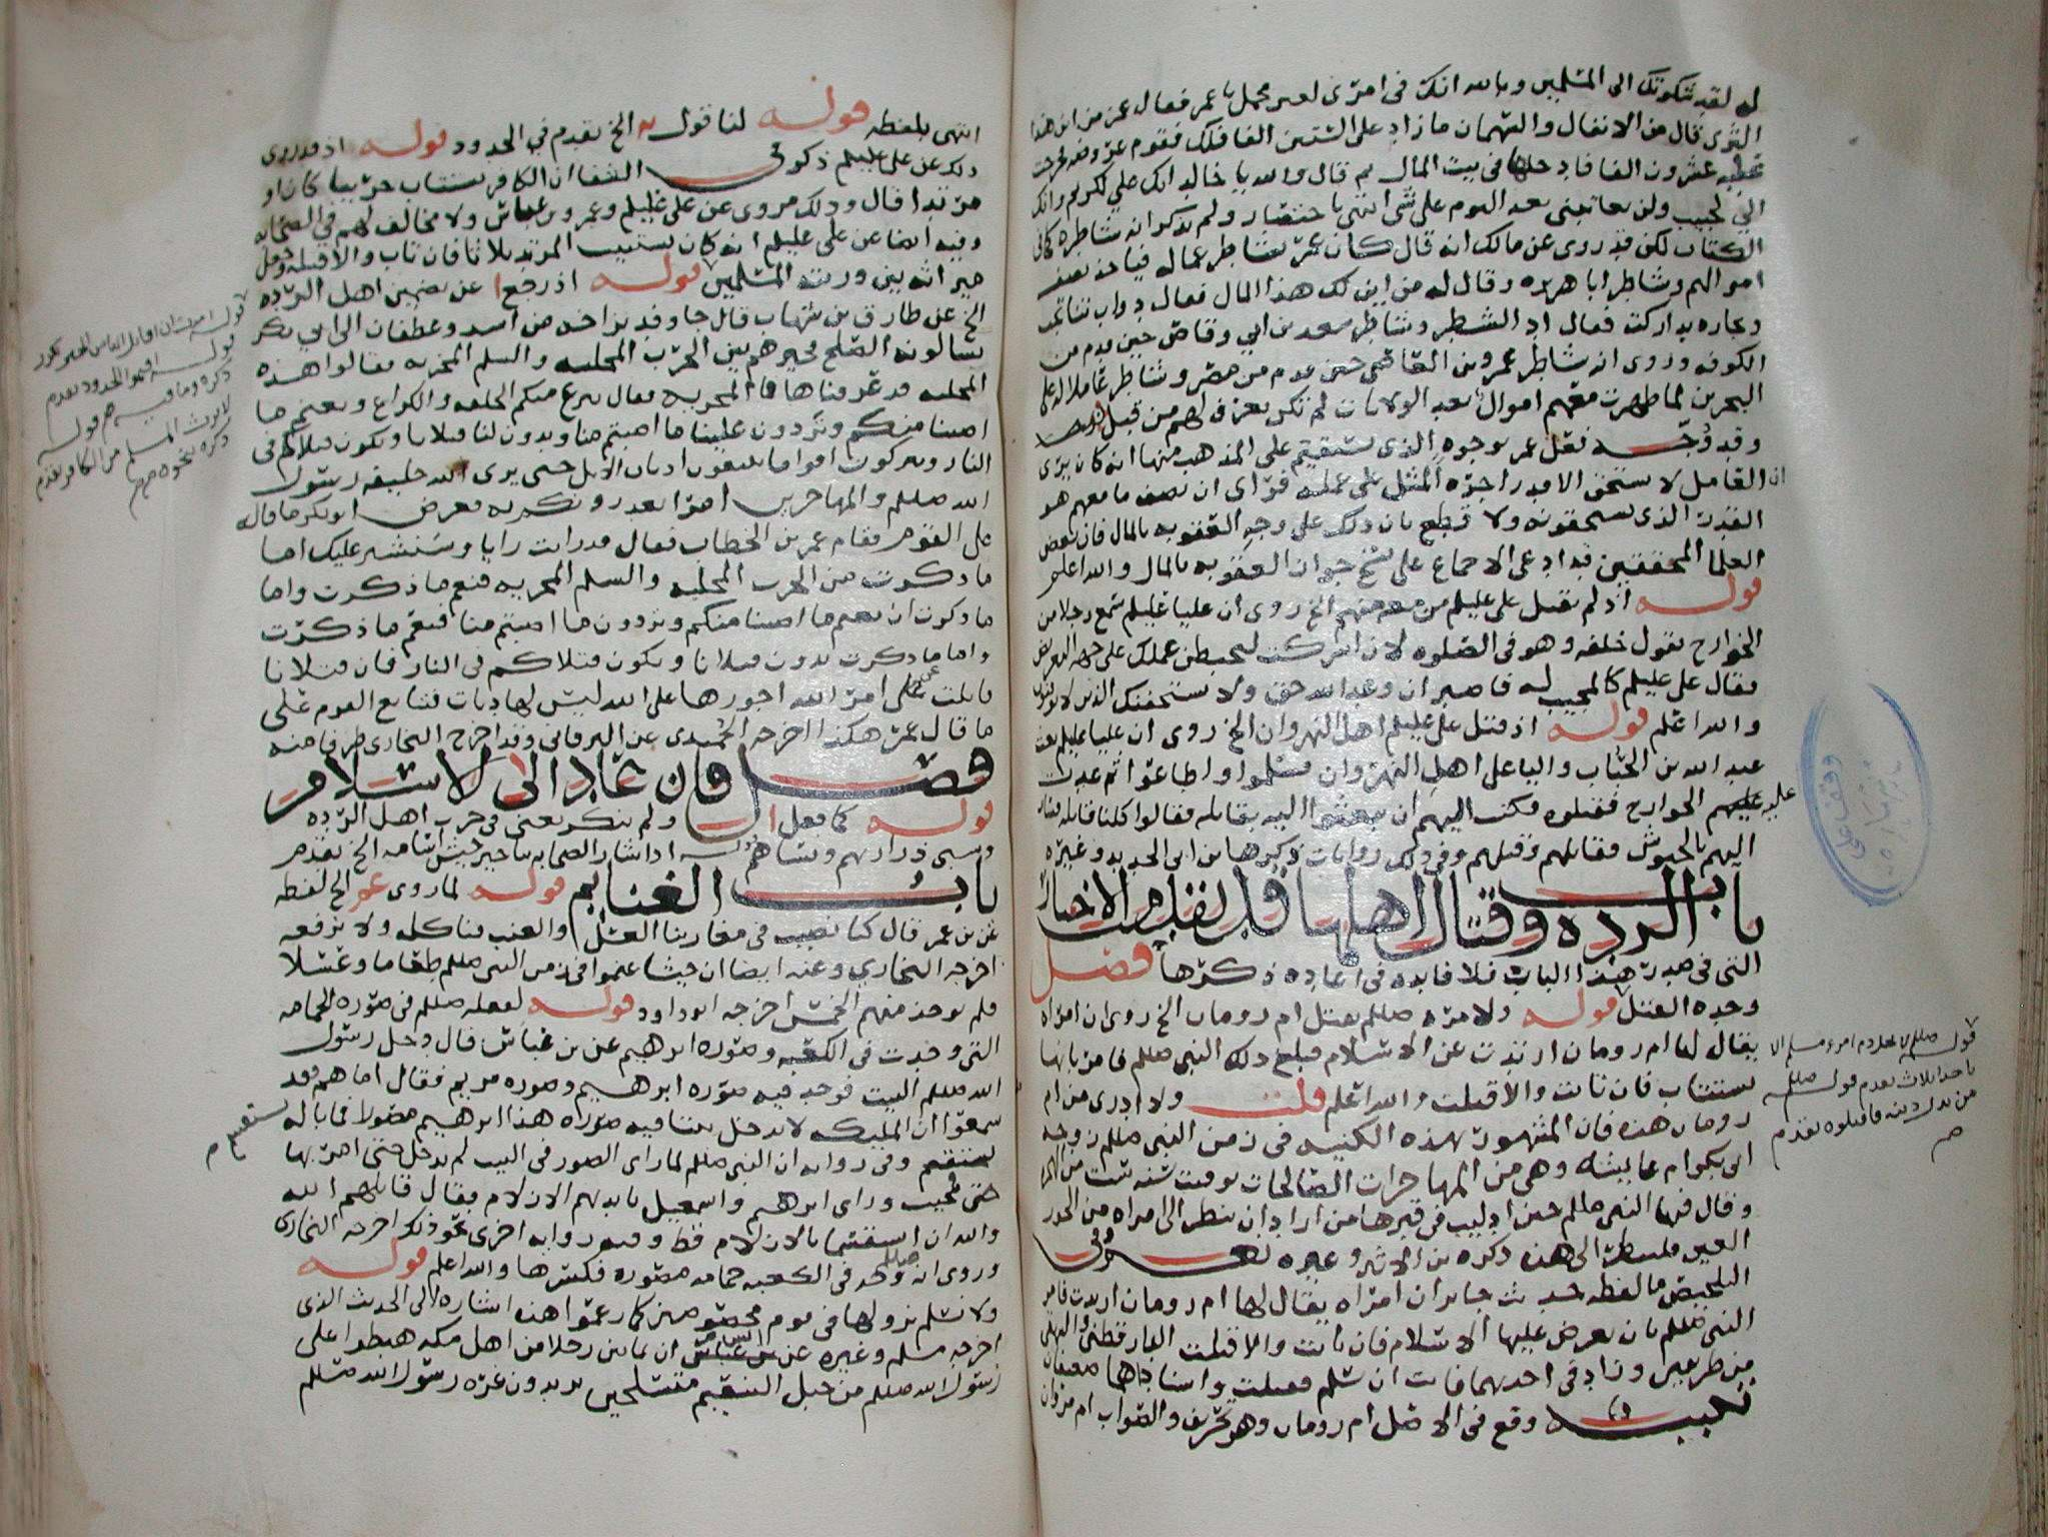 له لقد شكوتك الى المسلمين وبالله انك في امري لغير مجمل يا عمر فقال عمر من اين هذا
الثرى قال من الانفال والسهمان ما زاد على الستين الفا فلك فقوم عمر عروضه فخرجت
عليه عشرون الفا فادخلها في بيت المال ثم قال والله يا خالد انك علي لكريم وانك
الي لحبيب ولن تعاتبني بعد اليوم على شي انتهى باختصار ولم يذكر انه شاطره كما في
الكتاب لكن قد روى عن مالك انه قال كان عمر يشاطر عماله فياخذ نصف
اموالهم وشاطر ابا هريره وقال له من اين لك هذا المال فقال دواب تناتجت
وتجاره تداركت فقال اد الشطر وشاطر سعد بن ابي وقاص حين قدم من
الكوفه وروى انه شاطر عمرو بن العاص حين قدم من مصر وشاطر عامله على
البحرين لما ظهرت معهم اموال بعد الولايات لم تكن تعرف لهم من قبل
وقد وجه فعل عمر بوجوه الذي يستقيم على المذهب منها انه كان يرى
ان العامل لا يستحق الا قدر اجره المثل على عمله فراى ان نصف ما معهم هو
القدر الذي يستحقونه ولا قطع بان ذلك على وجه العقوبه بالمال فان بعض
العلما المحققين قد ادعى الاجماع على نسخ جواز العقوبه بالمال والله اعلم
قوله اذ لم يقتل علي عليلم من سمعه منهم الخ روى ان عليا عليلم سمع رجلا من
الخوارج يقول خلفه وهو في الصلوه لان اشركت ليحبطن عملك على جهه التعريض
فقال علي عليلم كالمجيب له فاصبر ان وعد الله حق ولا يستخفنك الذين لا يوقنون
والله اعلم قوله اذ قتل علي عليلم اهل النهروان الخ روى ان عليا عليلم بعث
عبد الله بن الخباب واليا على اهل النهروان فسلموا واطاعوا ثم عدت
عليه الخوارج فقتلوه فكتب اليهم ان ابعثوا اليه بقاتله فقالوا كلنا قاتله فسار
اليهم بالجيوش فقاتلهم وقتلهم وفي ذلك روايات ذكرها بن ابي الحديد وغيره
باب الرده وقتال اهلها قد تقدمت الاخبار
التي في صدر هذا الباب فلا فايده في اعاده ذكرها فصل
وحده القتل قوله ولامره صللم بقتل ام رومان الخ روى ان امراه
يقال لها ام رومان ارتدت عن الاسلام فبلغ ذلك النبي صللم فامر بانها
تستتاب فان تابت والا قتلت والله اعلم قلت ولا ادري من ام
رومان هذه فان المشهور بهذه الكنيه في زمن النبي صللم زوجه
ابي بكر ام عايشه وهي من المهاجرات الصالحات توفيت سنه ست من الهجره
وقال فيها النبي صللم حين ادليت في قبرها من اراد ان ينظر الى امراه من الحور
العين فلينظر الى هذه ذكره بن الاثير وغيره نعم وفي
التلخيص ما لفظه حديث جابر ان امراه يقال لها ام رومان ارتدت فامر
النبي صللم بان يعرض عليها الاسلام فان تابت والا قتلت الدارقطني والبيهقي
من طريقين وزاد في احدهما فابت ان تسلم فقتلت واسناداهما ضعيفان
تنبيه وقع في الاصل ام رومان وهو تحريف والصواب ام مروان
قوله صللم لا يحل دم امرء مسلم الا
باحدا ثلاث تقدم قوله صللم
من بدل دينه فاقتلوه تقدم
وقف على
انتهى بلفظه قوله لنا قوله الخ تقدم في الحدود قوله اذ قد روى
ذلك عن علي عليلم ذكر في الشفا ان الكافر يستتاب حربيا كان او
مرتدا قال وذلك مروى عن علي عليلم وعمر وبن عباس ولا مخالف لهم في الصحابه
وفيه ايضا عن علي عليلم انه كان يستتيب المرتد ثلاثا فان تاب والا قتله وجعل
ميراثه بين ورثته المسلمين قوله اذ رجع عن تضمين اهل الرده
الخ عن طارق بن شهاب قال جا وفد بزاخه من اسد وغطفان الى ابي بكر
يسالونه الصلح فخيرهم بين الحرب المجليه والسلم المخزيه فقالوا هذه
المجليه قد عرفناها فما المخزيه فقال ننزع منكم الحلقه والكراع ونغنم ما
اصبنا منكم وتردون علينا ما اصبتم منا وتدون لنا قتلانا وتكون قتلاكم في
النار وتتركون اقواما يتبعون اذناب الابل حتى يرى الله خليفه رسول
الله صللم والمهاجرين امرا يعذرونكم به فعرض ابو بكر ما قاله
على القوم فقام عمر بن الخطاب فقال قد رايت رايا وسنشير عليك اما
ما ذكرت من الحرب المجليه والسلم المخزيه فنعم ما ذكرت واما
ما ذكرت ان نغنم ما اصبنا منكم وتردون ما اصبتم منا فنعم ما ذكرت
واما ما ذكرت تدون قتلانا وتكون قتلاكم في النار فان قتلانا
قاتلت على امر الله اجورها على الله ليس لها ديات فتتابع القوم على
ما قال عمر هكذا اخرجه الحميدي عن البرقاني وقد اخرج البخاري طرفا منه
فصل فان عاد الى الاسلام
قوله كما فعل ولم ينكر يعني في حرب اهل الرده
وسبى ذراريهم ونساهم قوله اذ اشار الصحابه بتاخير جيش اسامه الخ تقدم
باب الغنايم قوله لما روى عمر الخ لفظه
عن بن عمر قال كنا نصيب في مغازينا العسل والعنب فناكله ولا نرفعه
اخرجه البخاري وعنه ايضا ان جيشا غنموا في زمن النبي صللم طعاما وعسلا
فلم يوخذ منهم الخمس اخرجه ابو داود قوله لفعله صللم في صوره الحمامه
التي وجدت في الكعبه وصوره ابرهيم عن بن عباس قال دخل رسول
الله صللم البيت فوجد فيه صوره ابرهيم وصوره مريم فقال اما هم فقد
سمعوا ان المليكه لا تدخل بيتا فيه صوره هذا ابرهيم مصورا فما باله
يستقسم وفي روايه ان النبي صللم لما راى الصور في البيت لم يدخل حتى امر بها
حتى محيت وراى ابرهيم واسمعيل بايديهم الازلام فقال قاتلهم الله
والله ان استقسما بالازلام قط وفيه روايه اخرى نحو ذلك اخرجه البخاري
وروى انه صللم وجد في الكعبه حمامه مصوره فكسرها والله اعلم قوله
ولا نسلم نزولها في قوم مخصوصين كما زعموا هذه اشاره الى الحديث الذي
اخرجه مسلم وغيره عن انس ان ثمانين رجلا من اهل مكه هبطوا على
رسول الله صللم من جبل التنعيم متسلحين يريدون غره رسول الله صللم
قوله امرت ان اقاتل الناس الخبر تكرر
قوله اقيموا الحدود تقدم
ذكره وما فيه قوله
لا يرث المسلم من الكافر تقدم
ذكره نحوه
يستقسم